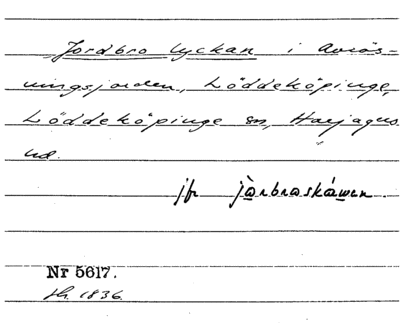 Jordbro lyckan i avrös-
ningsjorden, Löddeköpinge,
Löddeköpinge sn, Harjagers
hd.
jfr jàrbraskáwen.
Nr 5617.
sk. 1836.